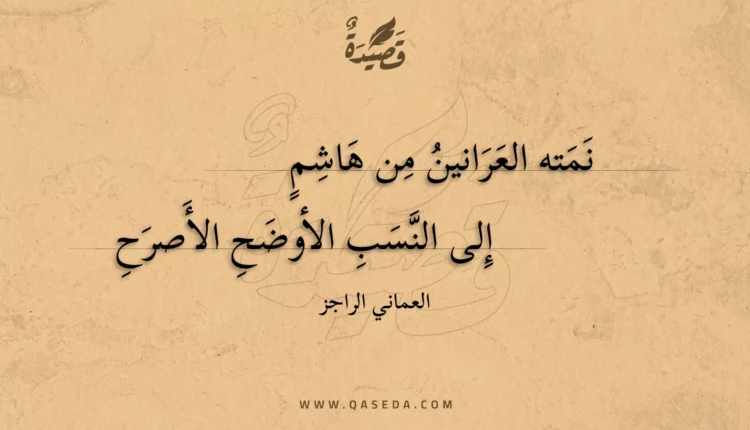 قَصِيْدَةٌ
نَمَته العَرَانينُ مِن هَاشِمٍ
إِلى النَّسَبِ الأوضَحِ الأَصرَحِ
العماني الراجز
WWW.QASEDA.COM